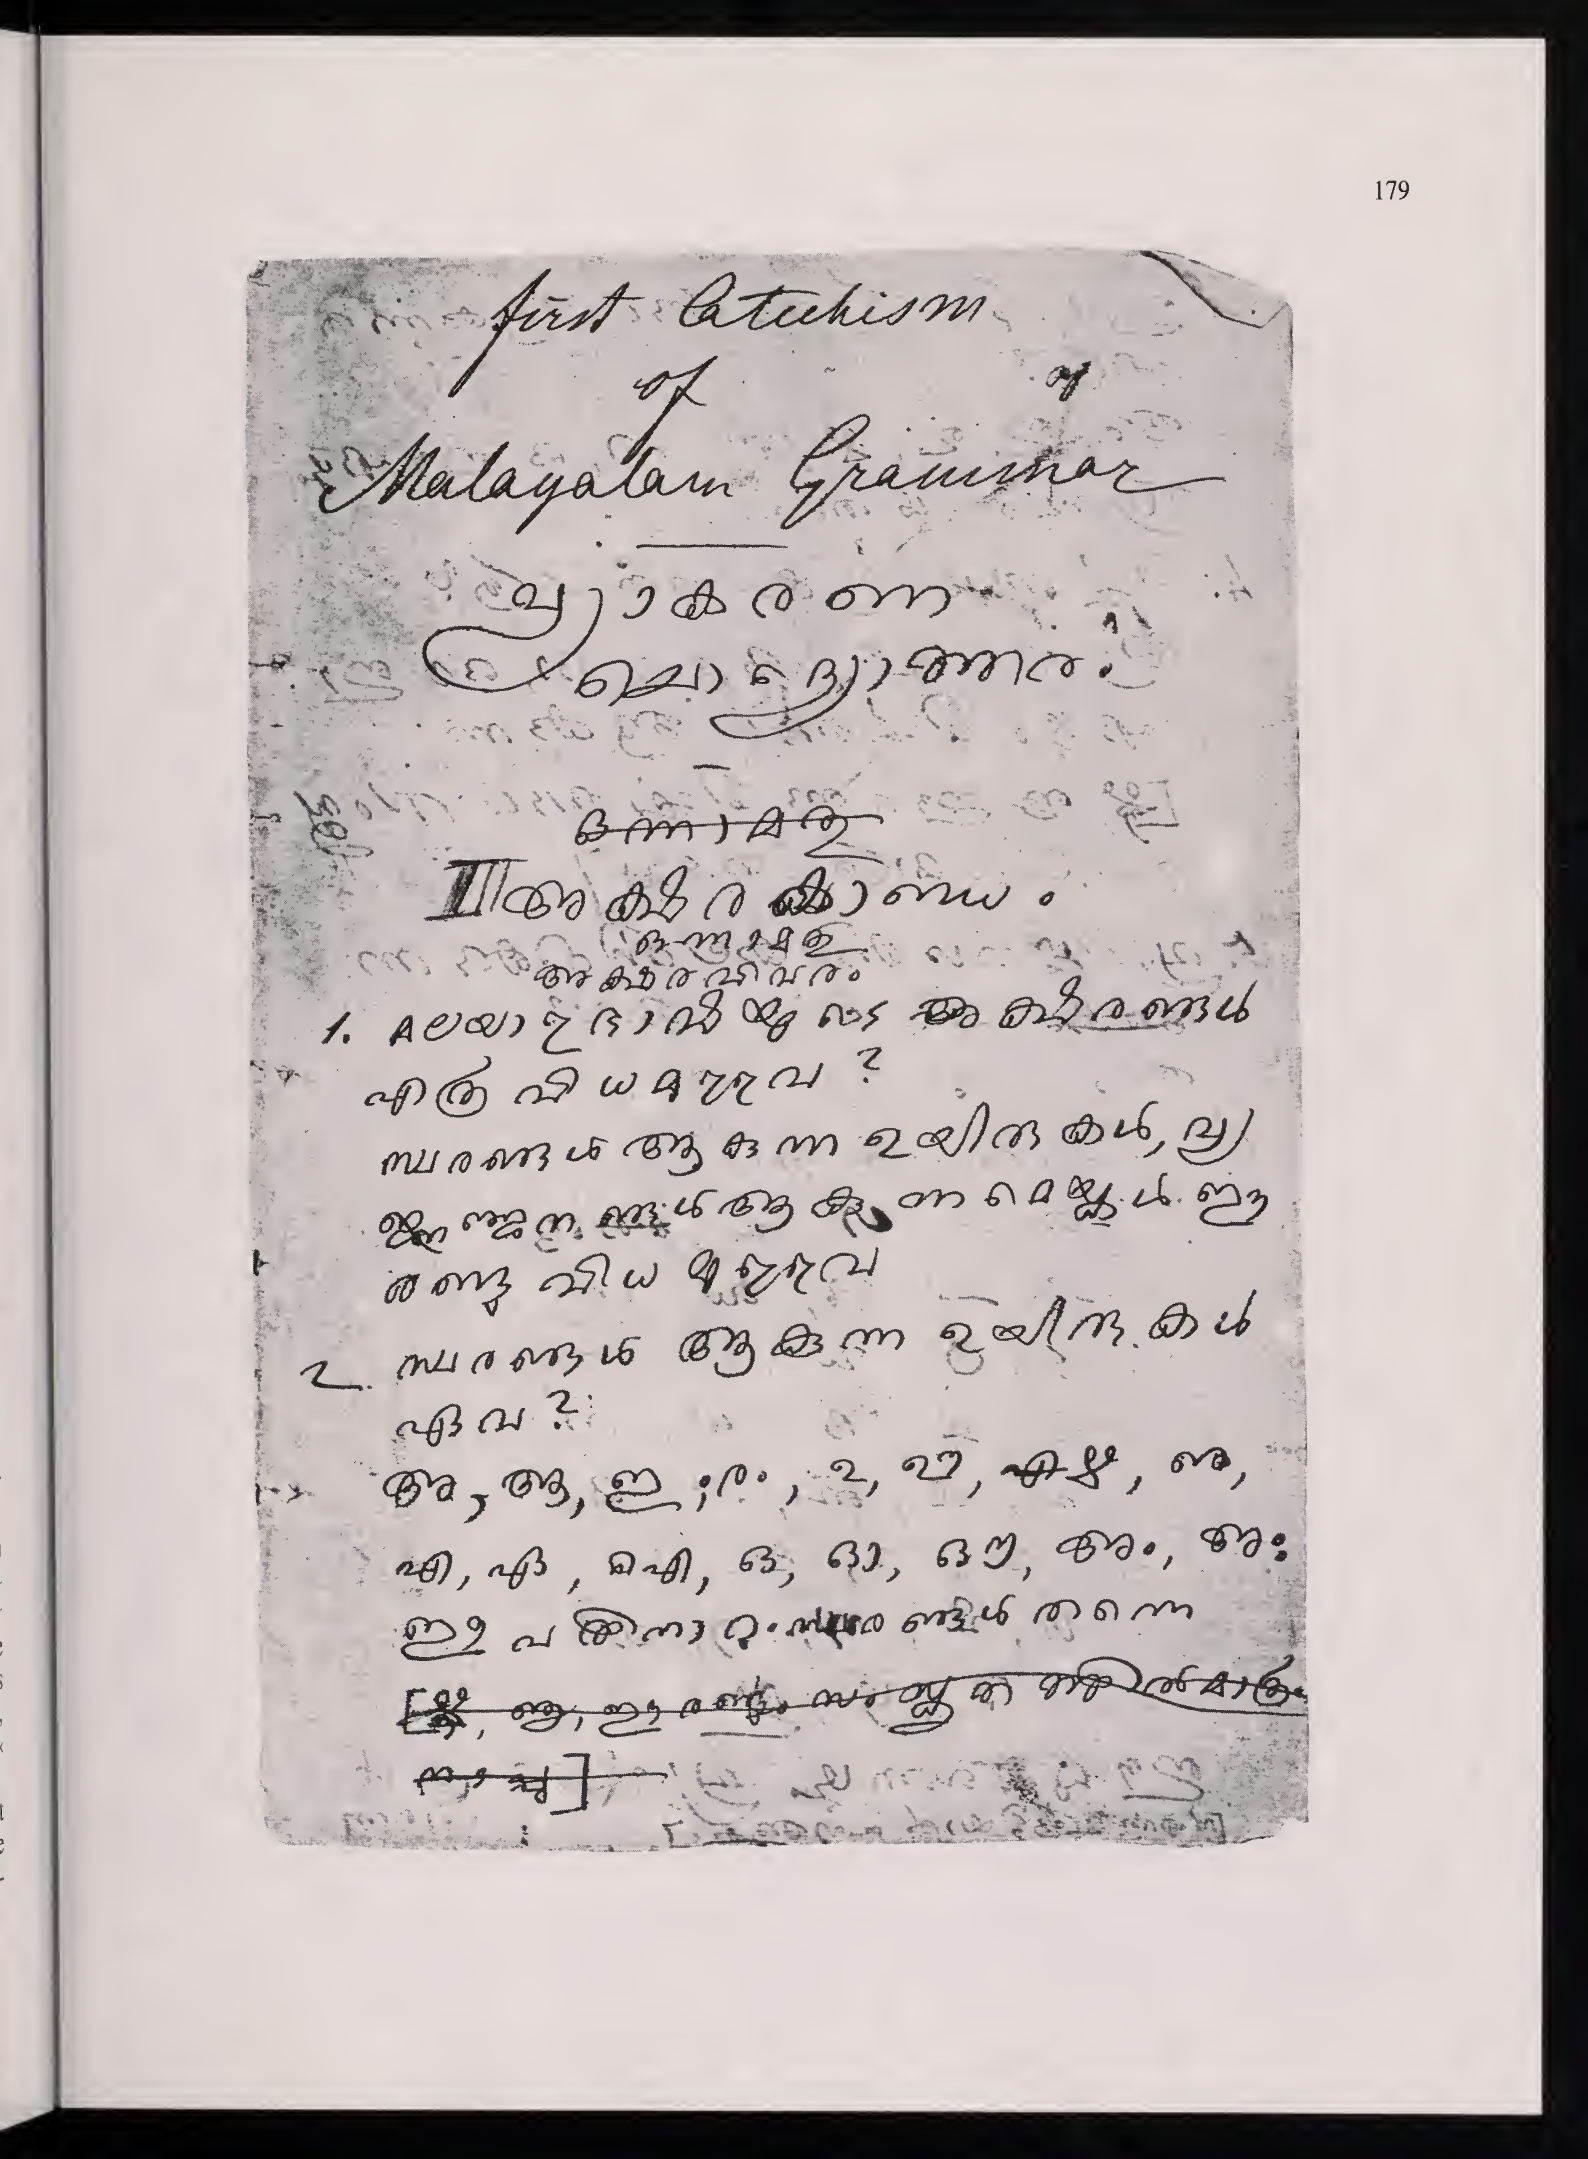 179
first Catechism
of of
Malayalam Grammar
വ്യാകരണ
ചൊദ്യോത്തരം
ഒന്നാമതു
III അക്ഷരകാണ്ഡം
ഒന്നാമതു
അക്ഷരവിവരം
1. മലയാഴ ഭാഷയുടെ അക്ഷരങ്ങൾ
എത്ര വിധമുള്ളവ?
സ്വരങ്ങൾ ആകുന്ന ഉയിരുകൾ, വ്യ
ഞ്ജനങ്ങൾ ആകുന്ന മെയ്യുകൾ ഈ
രണ്ടു വിധമുള്ളവ
2. സ്വരങ്ങൾ ആകുന്ന ഉയിരുകൾ
ഏവ?
അ, ആ, ഇ, ൟ, ഉ, ഊ, ഋ,
എ, ഏ, ഐ, ഒ, ഓ, ഔ, അം, അഃ
ഈ പതിനാറും സ്വരങ്ങൾ തന്നെ
ഈ രണ്ടും സംസ്കൃതത്തിൽ മാത്രം